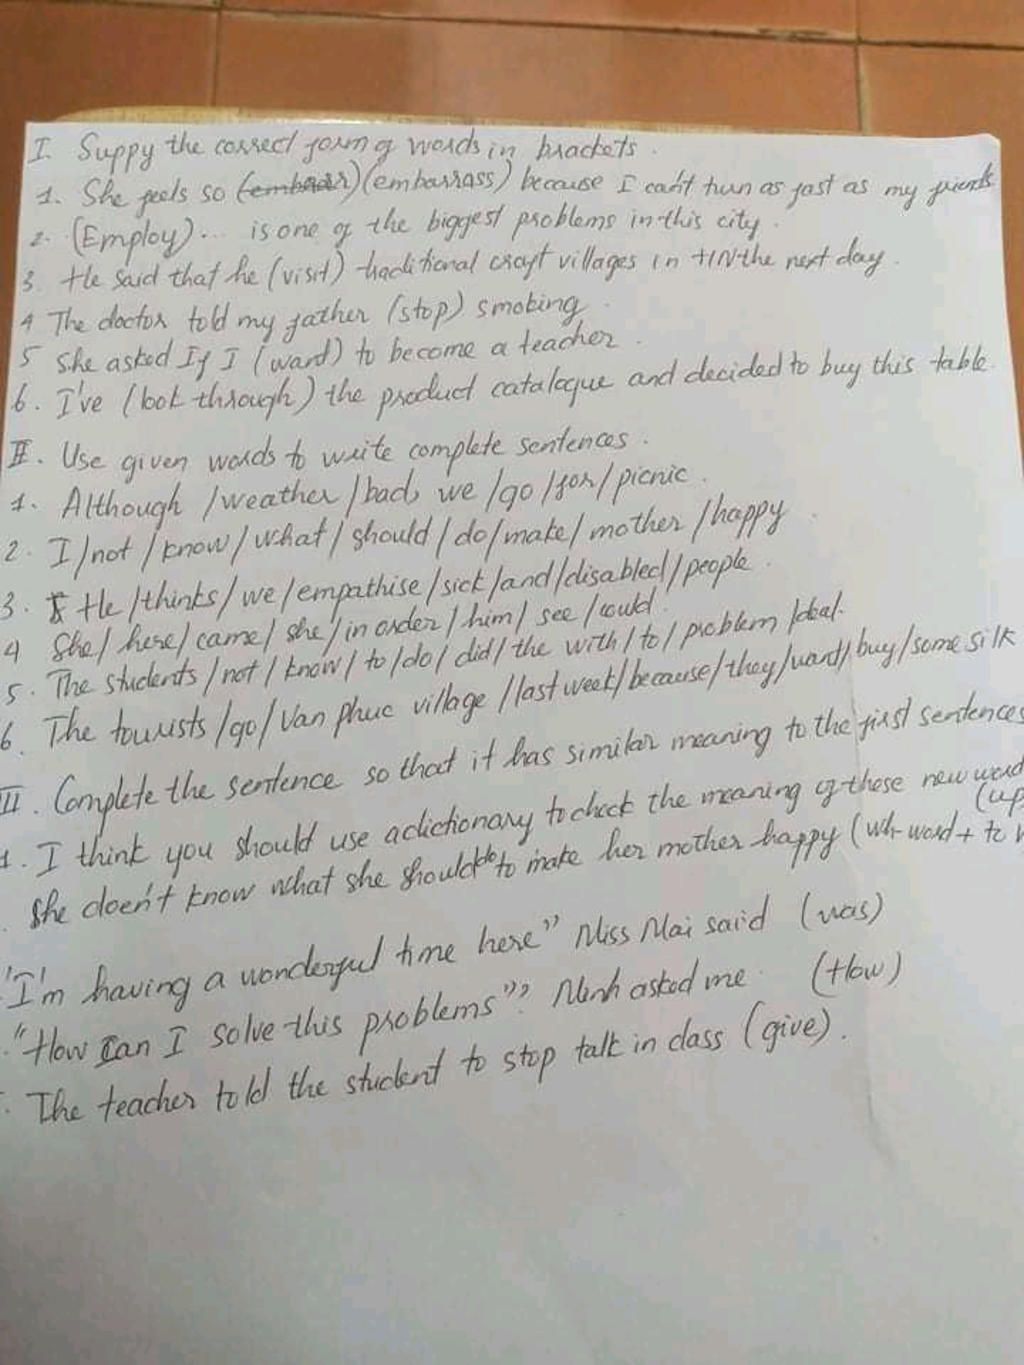 I. Suppy the correct form of words in brackets.
1. She feels so (embarrass) because I can't run as fast as my friends
2. (Employ)... is one of the biggest problems in this city.
3. He said that he (visit) traditional craft villages in HN the next day.
4 The doctor told my father (stop) smoking.
5 She asked If I (want) to become a teacher.
6. I've (look through) the product catalogue and decided to buy this table.
II. Use given words to write complete sentences.
1. Although /weather /bad, we /go /for/ picnic.
2. I/not /know/ what/ should/ do/make/ mother /happy.
3. He /thinks/ we/empathise/sick/and/disabled/people.
4 She/ here/ came/ she/ in order/ him/ see /could.
5. The students /not / know/ to /do/ did/ the with/ to/ problem /deal.
6. The tourists /go/ Van phuc village /last week/ because/they/want/ buy/some silk
III. Complete the sentence so that it has similar meaning to the first sentences
1. I think you should use a dictionary to check the meaning of these new word
(up
She doen't know what she should do to make her mother happy (wh-word + to
"I'm having a wonderful time here" Miss Mai said (was)
"How can I solve this problems"? Minh asked me. (How)
The teacher told the student to stop talk in class (give).